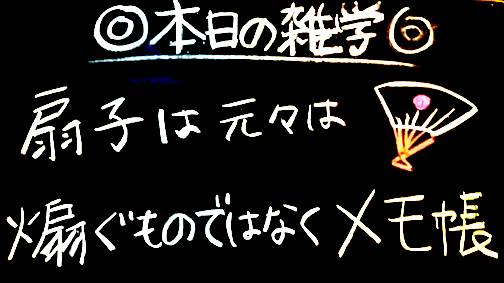 ◎本日の雑学◎
扇子は元々は
煽ぐものではなくメモ帳